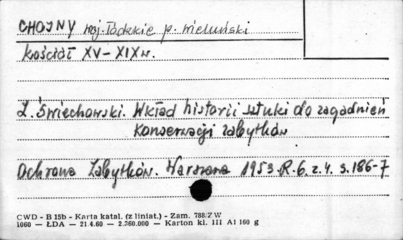 CHOJNY woj. Łódzkie p. wieluński
kościół XV-XIX w.
Z. Świechowski. Wkład historii sztuki do zagadnień
konserwacji zabytków
Ochrona Zabytków. Warszawa 1953. R. 6. z. 4. s. 186-7
CWD - B 15b - Karta katal. (z liniat.) - Zam. 788/ZW
1060 - ŁDA - 21 4.60 - 2.760.000 - Karton kl. III A1 160 g